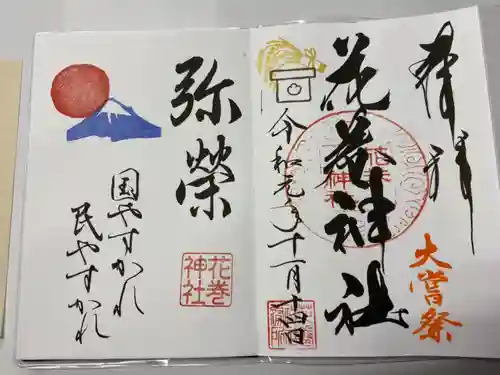 奉拝
大嘗祭
花巻神社
令和元年十一月十四日
弥榮
国やすかれ
民やすかれ
花巻
神社